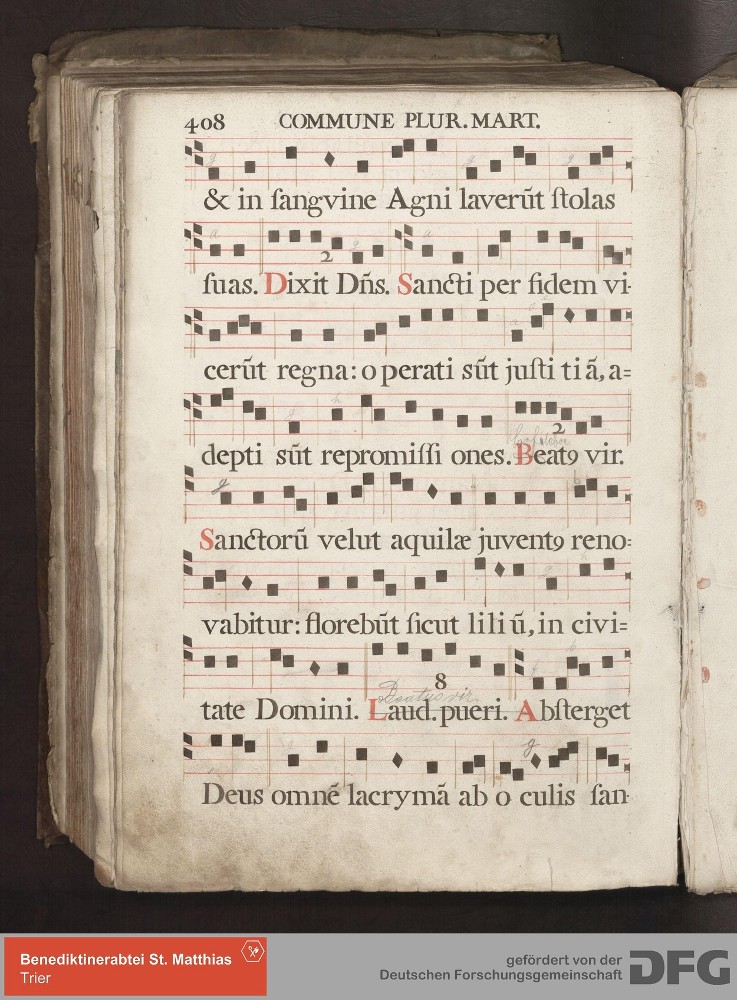 408 COMMUNE PLUR. MART.
& in ſangvine Agni laverūt ſtolas
2
ſuas. Dixit Dñs. Sancti per fidem vi-
cerūt regna: operati sūt juſtitiā, a=
2
depti sūt repromiſſiones. Beatꝯ vir.
Sanctorū velut aquilæ juventꝯ reno=
vabitur: florebūt ſicut liliū, in civi=
8
Beatus vir.
tate Domini. Laud. pueri. Abſterget
Deus omnē lacrymā ab oculis ſan-
Benediktinerabtei St. Matthias
Trier
gefördert von der
Deutschen Forschungsgemeinschaft
DFG